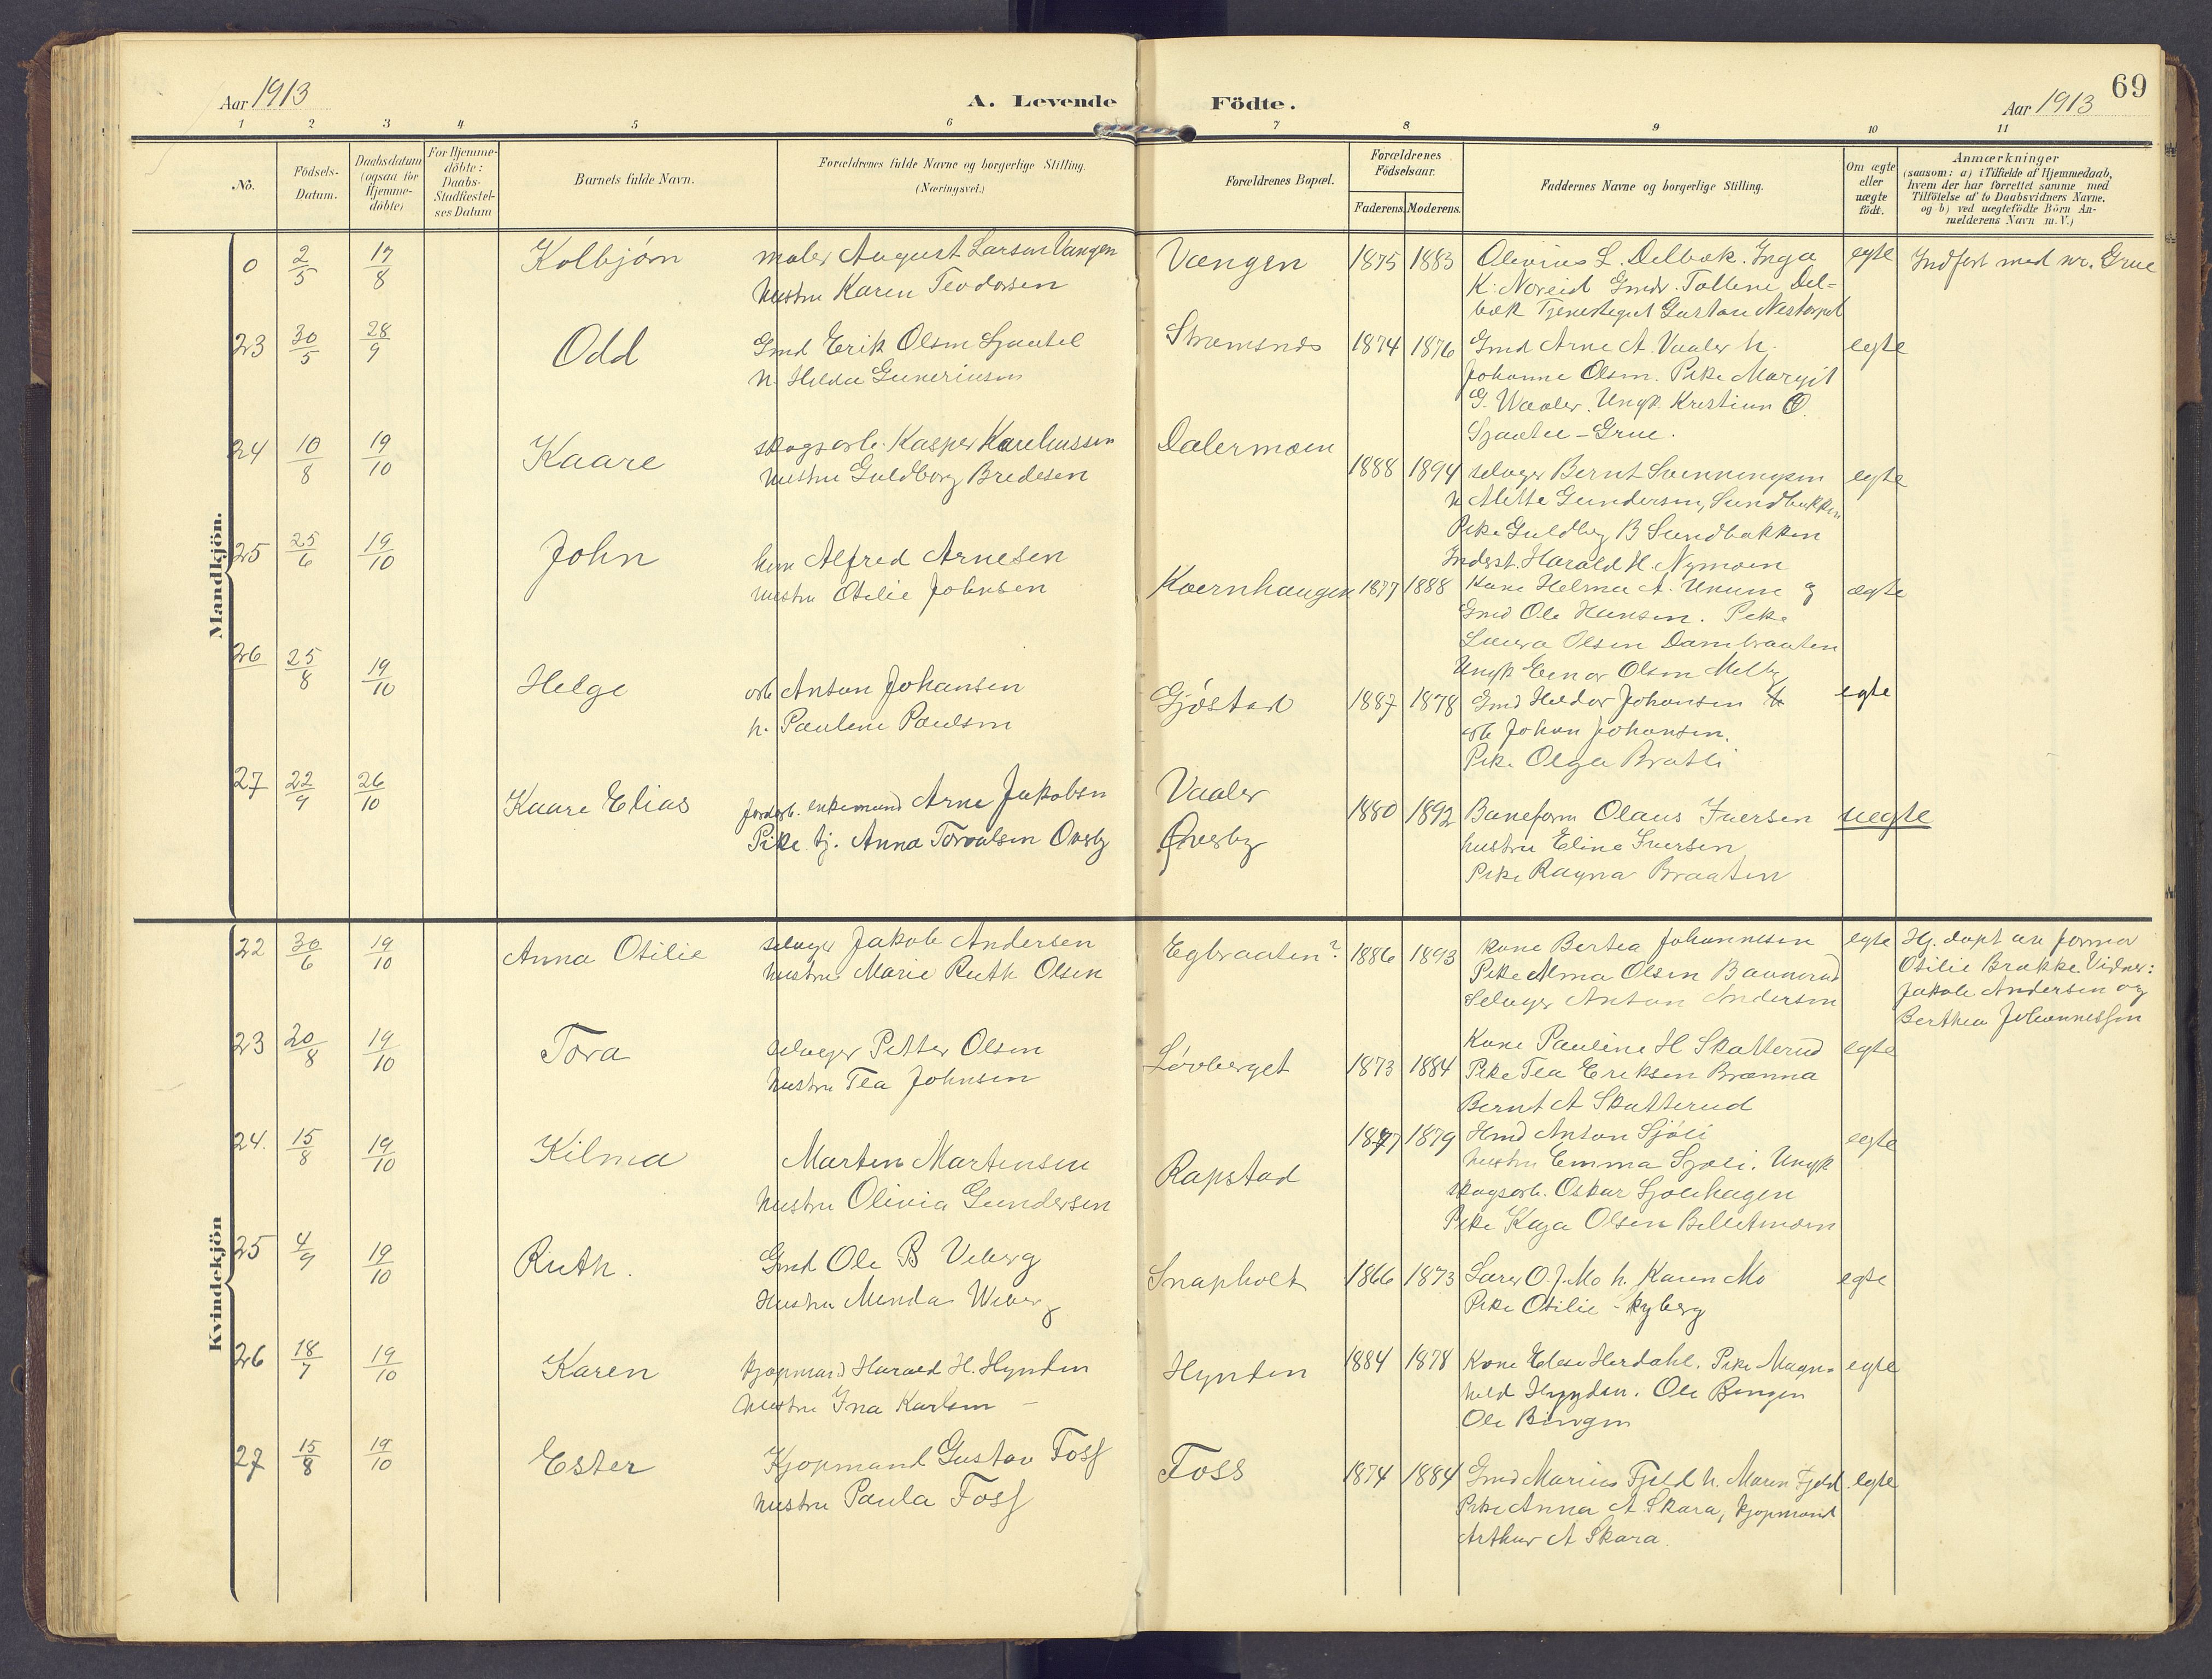 69
Aar 1913
A. Levende Födte.
Aar 1913
1 2 3 4 5 6 7 8 9 10 11
No.
Födsels-Datum.
Daabsdatum (ogsaa for Hjemme-döbte)
For Hjemme-döbte: Daabs-Stadfæstel-ses Datum
Barnets fulde Navn.
Forældrenes fulde Navne og borgerlige Stilling. (Næringsvei.)
Forældrenes Bopæl.
Forældrenes Födselsaar.
Faderens. Moderens.
Faddernes Navne og borgerlige Stilling.
Om ægte eller uægte födt.
Anmærkninger
(saasom: a) i Tilfælde af Hjemmedaab,
hvem der har forrettet samme med
Tilföielse af to Daabsvidners Navne,
og b) ved uægtefödte Börn An-
melderens Navn m.V.)
Mandkjön.
0 2/5 17/8 Kolbjörn
maler August Larsen Vangen
hustru Karen Teodorsen
Vangen 1875 1883
Olivius L. Delbæk. Inga
K. Noreid Gmdr. Tolline Del-
bæk Tjenestegut Gustav
egte
Indført med nr. Grue
23 30/5 28/9 Odd
Gmd Erik Olsen
h. Hilda Guneriusen
Strømsnes 1874 1876
Gmd Arne A. Vaaler h.
Johanne Olsen. Pike Margit
G. Waaler. Ungk. Kristian O.
Grue.
egte
24 10/8 19/10 Kaare
skogsarb. Kasper
hustru Guldborg Bredesen
Dalermoen 1888 1894
selveger Bernt Svenningsen
h Mette Gundersen, Sundbakken
Pike Guldbrg B Sundbakken
Inderst. Harald H. Nymoen
egte
25 25/6 19/10 John
Alfred Arnesen
hustru Otilie Johnsen
Kvernhaugen 1877 1888
Kone Helma A. og
Gmd Ole Hansen. Pike
Laura Olsen Dambraaten
Ungk Einar Olsen Melby
ægte
26 25/8 19/10 Helge
arb Anton Johansen
h. Pauline Paulsen
Gjöstad 1887 1878
Gmd Haldor Johansen
arb Johan Johansen.
Pike Olga Bratli
egte
27 22/9 26/10 Kaare Elias
jordarb. enkemand Arne Jakobsen
Pike tj. Anna Torvalsen Overby
Vaaler
Overby
1880 1892
Baneform Olaus Iversen
hustru Eline Iversen
Pike Ragna Braaten
uegte
Kvindekjön
22 30/6 19/10 Anna Otilie
selveger Jakob Andersen
hustru Marie Ruth Olsen
Egbraaten? 1886 1893
Kone Bertea Johannesen
Pike Alma Olsen
Selveger Anton Andersen
egte
Hj. døpt av jormor
Otilie Brakke. Vidner:
Jakob Andersen og
Berthea Johannessen
23 20/8 19/10 Tora
selveger Petter Olsen
hustru Tea Johnsen
Løvberget 1873 1884
Kone Pauline H Skatterud
Pike Tea Eriksen Brænna
Bernt A Skatterud
egte
24. 15/8 19/10 Kilma
Marten Martinsen
hustru Olivia Gundersen
Rapstad 1877 1879
Hmd Anton Sjöli
hustru Emma Sjøli. Ungk
skogsarb. Oskar Sjølihagen
Pike Kaja Olsen
egte
25 4/9 19/10 Ruth.
Gmd Ole B Viberg
Hustru Minda Wiberg
Snapholt 1866 1873
Lærer O. J. Mo h. Karen Mo
Pike Otilie
egte
26 18/7 19/10 Karen
kjøpmand Harald H. Hynden
hustru Ina Karlsen –
Hynden 1884 1878
Kone Elise Herdahl. Pike Magn-
hild Hynden. Ole Bingen
Ole Bingen
egte
27 15/8 19/10 Ester
Kjøpmand Gustav Foss
hustru Paula Foss
Foss 1874 1884
Gmd Marius Fjeld h. Maren Fjeld
Pike Anna A Skara, kjøpmand
Arthur A Skara.
egte